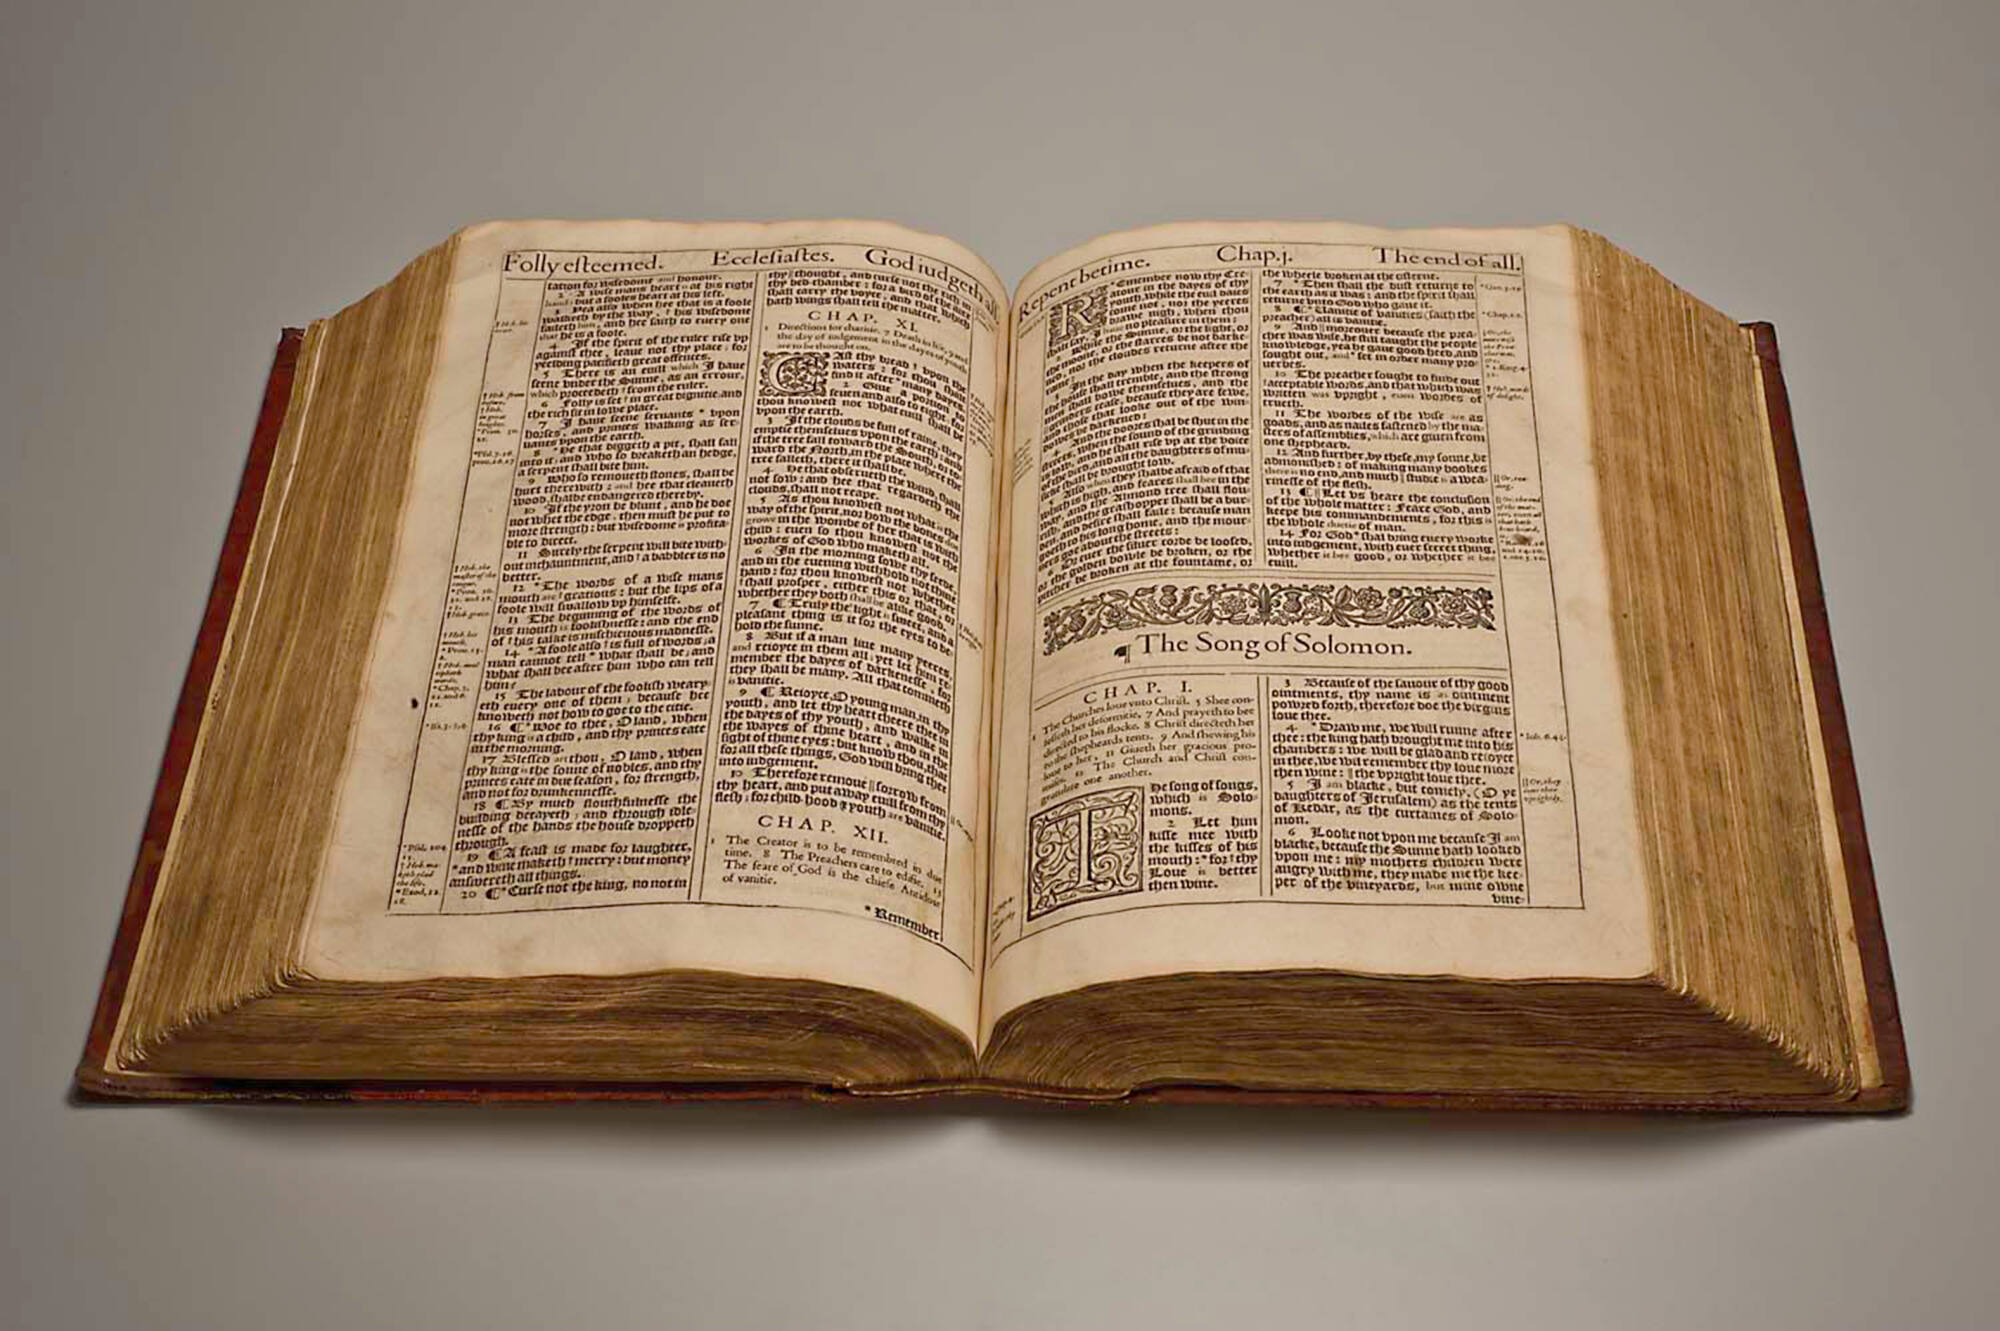 Folly esteemed. Ecclesiastes. God iudgeth all.
tation for wisedome and honour.
2 A wise mans heart is at his right
hand: but a fooles heart at his left.
3 Yea also when hee that is a foole
walketh by the way, † his wisedome
faileth him, and hee saith to euery one
that he is a foole.
4 If the spirit of the ruler rise vp
against thee, leaue not thy place; for
yeelding pacifieth great offences.
5 There is an euill which I haue
seene vnder the Sunne, as an errour,
which proceedeth † from the ruler.
6 Folly is set † in great dignitie, and
the rich sit in lowe place.
7 I haue seene seruants * vpon
horses, and princes walking as ser-
uants vpon the earth.
8 * He that diggeth a pit, shall fall
into it; and who so breaketh an hedge,
a serpent shall bite him.
9 Who so remoueth stones, shall be
hurt therewith: and hee that cleaueth
wood, shalbe endangered thereby.
10 If the yron be blunt, and he doe
not whet the edge, then must he put to
more strength: but wisedome is profita-
ble to direct.
11 Surely the serpent will bite with-
out inchauntment, and † a babbler is no
better.
12 * The words of a wise mans
mouth are † gratious: but the lips of a
foole will swallow vp himselfe.
13 The beginning of the words of
his mouth is foolishnesse: and the end
of † his talke is mischieuous madnesse.
14 * A foole also † is full of words; a
man cannot tell * what shall be; and
what shall bee after him who can tell
him?
15 The labour of the foolish weary-
eth euery one of them; because hee
knoweth not how to goe to the citie.
16 ¶ * Woe to thee, O land, when
thy king is a child, and thy princes eate
in the morning.
17 Blessed art thou, O land, when
thy king is the sonne of nobles, and thy
princes eate in due season, for strength,
and not for drunkennesse.
18 ¶ By much slouthfulnesse the
building decayeth; and through idle-
nesse of the hands the house droppeth
through.
19 ¶ A feast is made for laughter,
* and wine maketh † merry: but money
answereth all things.
20 ¶ * Curse not the king, no not in
thy † thought, and curse not the rich in
thy bed-chamber: for a bird of the aire
shall carry the voyce, and that which
hath wings shall tell the matter.
CHAP. XI.
1 Directions for charitie. 7 Death in life, 9 and
the day of iudgement in the dayes of youth
are to be thought on.
Cast thy bread † vpon the
waters: for thou shalt
find it after * many dayes.
2 Giue a portion to
seuen and also to eight; for
thou knowest not what euill shall be
vpon the earth.
3 If the clouds be full of raine, they
emptie themselues vpon the earth: and
if the tree fall toward the South, or to-
ward the North, in the place where the
tree falleth, there it shall be.
4 He that obserueth the wind, shall
not sow: and hee that regardeth the
clouds, shall not reape.
5 As thou knowest not what is the
way of the spirit, nor how the bones doe
grow in the wombe of her that is with
child: euen so thou knowest not the
workes of God who maketh all.
6 In the morning sowe thy seede,
and in the euening withhold not thine
hand: for thou knowest not whether
† shall prosper, either this or that, or
whether they both shall be alike good.
7 ¶ Truly the light is sweet, and a
pleasant thing is it for the eyes to be-
hold the sunne.
8 But if a man liue many yeeres,
and reioyce in them all; yet let him re-
member the dayes of darkenesse, for
they shall be many. All that commeth
is vanitie.
9 ¶ Reioyce, O young man, in thy
youth, and let thy heart cheere thee in
the dayes of thy youth, and walke in
the wayes of thine heart, and in the
sight of thine eyes: but know thou, that
for all these things, God will bring thee
into iudgement.
10 Therefore remoue || sorrow from
thy heart, and put away euill from thy
flesh; for child-hood & youth are vanitie.
CHAP. XII.
1 The Creator is to be remembred in due
time. 8 The Preachers care to edifie. 13
The feare of God is the chiefe Antidote
of vanitie.
* Remember
Repent betime. Chap.j. The end of all.
Remember now thy Cre-
atour in the dayes of thy
youth, while the euil daies
come not, nor the yeeres
drawe nigh, when thou
shalt say, I haue no pleasure in them:
2 While the Sunne, or the light, or
the moone, or the starres be not darke-
ned, nor the cloudes returne after the
raine:
3 In the day when the keepers of
the house shall tremble, and the strong
men shall bowe themselues, and the
grinders cease, because they are fewe,
and those that looke out of the win-
dowes be darkened:
4 And the doores shal be shut in the
streets, when the sound of the grinding
is low, and he shall rise vp at the voice
of the bird, and all the daughters of mu-
sicke shall be brought low.
5 Also when they shalbe afraid of that
which is high, and feares shall bee in the
way, and the Almond tree shall flou-
rish, and the grashopper shall be a bur-
den, and desire shall faile: because man
goeth to his long home, and the mour-
ners goe about the streets:
6 Or euer the siluer corde be loosed,
or the golden bowle be broken, or the
pitcher be broken at the fountaine, or
the wheele broken at the cisterne.
7 * Then shall the dust returne to
the earth as it was: and the spirit shall
returne vnto God who gaue it.
8 ¶ * Vanitie of vanities (saith the
preacher) all is vanitie.
9 And || moreouer because the prea-
cher was wise, he still taught the people
knowledge, yea he gaue good heed, and
sought out, and * set in order many pro-
uerbes.
10 The preacher sought to finde out
† acceptable words, and that which was
written was vpright, euen wordes of
trueth.
11 The wordes of the wise are as
goads, and as nailes fastened by the ma-
sters of assemblies, which are giuen from
one shepheard.
12 And further, by these, my sonne, be
admonished: of making many bookes
there is no end, and much || studie is a wea-
rinesse of the flesh.
13 ¶ || Let vs heare the conclusion
of the whole matter: Feare God, and
keepe his commandements, for this is
the whole duetie of man.
14 For God * shal bring euery worke
into iudgement, with euery secret thing,
whether it bee good, or whether it bee
euill.
¶ The Song of Solomon.
CHAP. I.
1 The Churches loue vnto Christ. 5 Shee con-
fesseth her deformitie, 7 And prayeth to bee
directed to his flocke. 8 Christ directeth her
to the shepheards tents. 9 And shewing his
loue to her, 11 Giueth her gracious pro-
mises. 12 The Church and Christ con-
gratulate one another.
The song of songs,
which is Solo-
mons.
2 Let him
kisse mee with
the kisses of his
mouth: * for † thy
Loue is better
then wine.
3 Because of the sauour of thy good
ointments, thy name is as ointment
powred forth, therefore doe the virgins
loue thee.
4 * Draw me, we will runne after
thee: the king hath brought me into his
chambers: we will be glad and reioyce
in thee, we wil remember thy loue more
then wine: || the vpright loue thee.
5 I am blacke, but comely, (O ye
daughters of Ierusalem) as the tents
of Kedar, as the curtaines of Solo-
mon.
6 Looke not vpon me because I am
blacke, because the Sunne hath looked
vpon me: my mothers children were
angry with me, they made me the kee-
per of the vineyards, but mine owne
vine-